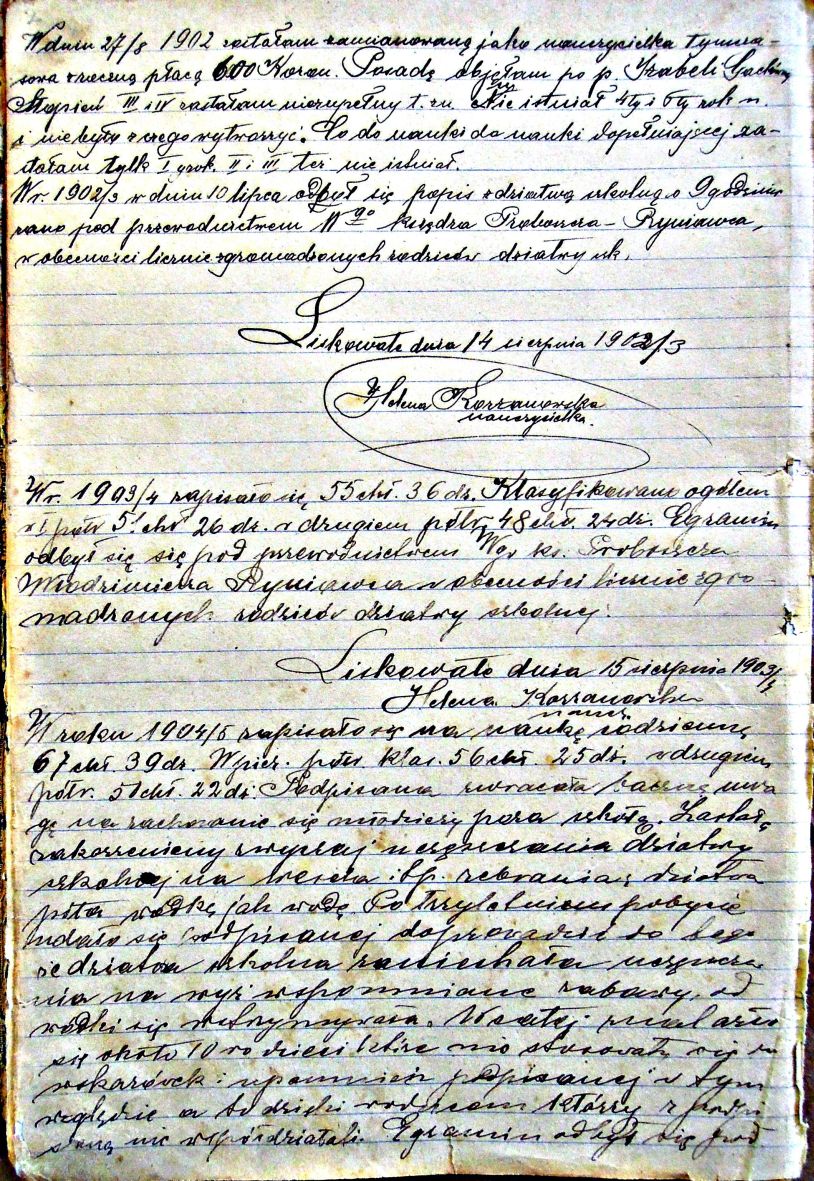 W dniu 27/8 1902 zostałam zamianowaną jako nauczycielka tymcza-
sowa z roczną płacą 600 Koron. Posadę objęłam po p. Izabeli
Stopień III i IV zastałam niezupełny t. zn. nie istniał 4ty i 6ty rok n.
i nie było z czego wytworzyć. Co do nauki do nauki dopełniającej za-
stałam tylk I rok. II i III też nie istniał.
W r. 1902/3 w dniu 10 lipca odbył się popis z dziatwą szkolną o 9 godzinie
rano pod przewodnictwem Wgo księdza Proboszcza - Ryniawca,
w obecności licznie zgromadzonych rodziców dziatwy szk.
Liskowate dnia 14 sierpnia 1902/3
Helena Korzanowska
nauczycielka.
W r. 1903/4 zapisało się 55 chł. 36 dz. Klasyfikowano ogółem
w I półr 51 chł 26 dz. w drugiem półr. 48 chł. 24 dz. Egzamin
odbył się się pod przewodnictwem Wgo ks. Proboszcza
Włodzimierza Ryniawca w obecności licznie zgro-
madzonych rodziców dziatwy szkolnej.
Liskowate dnia 15 sierpnia 1903/4
Helena Korzanowska
naucz.
W roku 1904/5 zapisało się na naukę codzienną
67 chł. 39 dz. W pier. półr. klas. 56 chł. 25 dz. w drugiem
półr. 51 chł. 22 dz. Podpisana zwracała baczną uwa
gę na zachowanie się młodzieży poza szkołą. Zastałą
zakorzeniony zwyczaj uczęszczania dziatwy
szkolnej na wesela i t p. zebrania dziatwa
piła wódkę jak wodę. Po trzyletniem pobycie
udało się podpisanej doprowadzić do tego
że dziatwa szkolna zaniechała uczęszcza
nia na wyż wspomniane zabawy, od
wódki się wstrzymywała. W całej znalazło
się około 10 ro dzieci które nie stosowały się do
wskazówek i upomnień podpisanej w tym
względzie a to dzięki rodzicom którzy z podpi
saną nie współdziałali. Egzamin odbył się pod